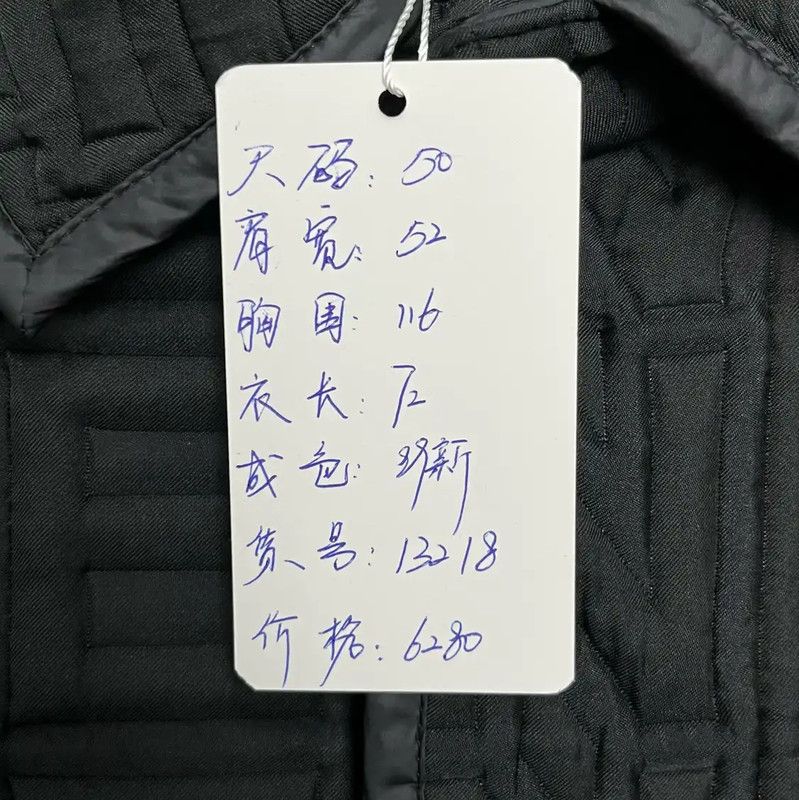 尺码: 50
肩宽: 52
胸围: 116
衣长: 72
成色: 99新
货号: 13218
价格: 6280